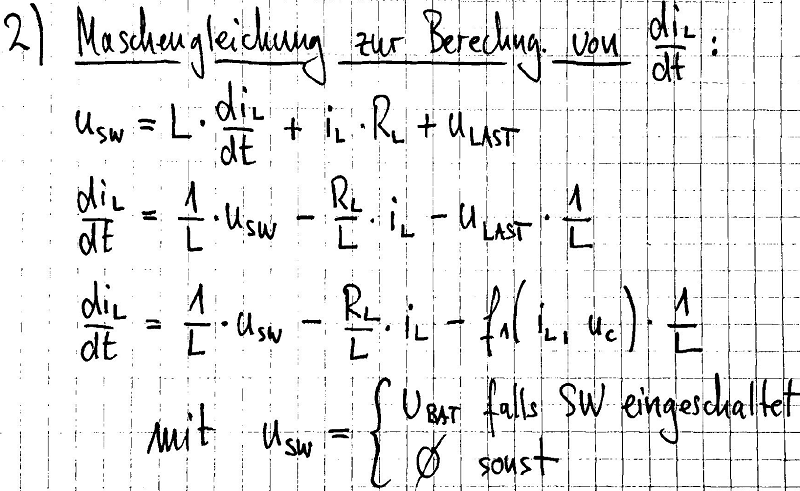 2) Maschengleichung zur Berechng. von di_L/dt :
u_SW = L · di_L/dt + i_L · R_L + u_LAST
di_L/dt = 1/L · u_SW − R_L/L · i_L − u_LAST · 1/L
di_L/dt = 1/L · u_SW − R_L/L · i_L − f_1( i_L, u_C ) · 1/L
mit u_SW = { U_BAT falls SW eingeschaltet
∅ sonst